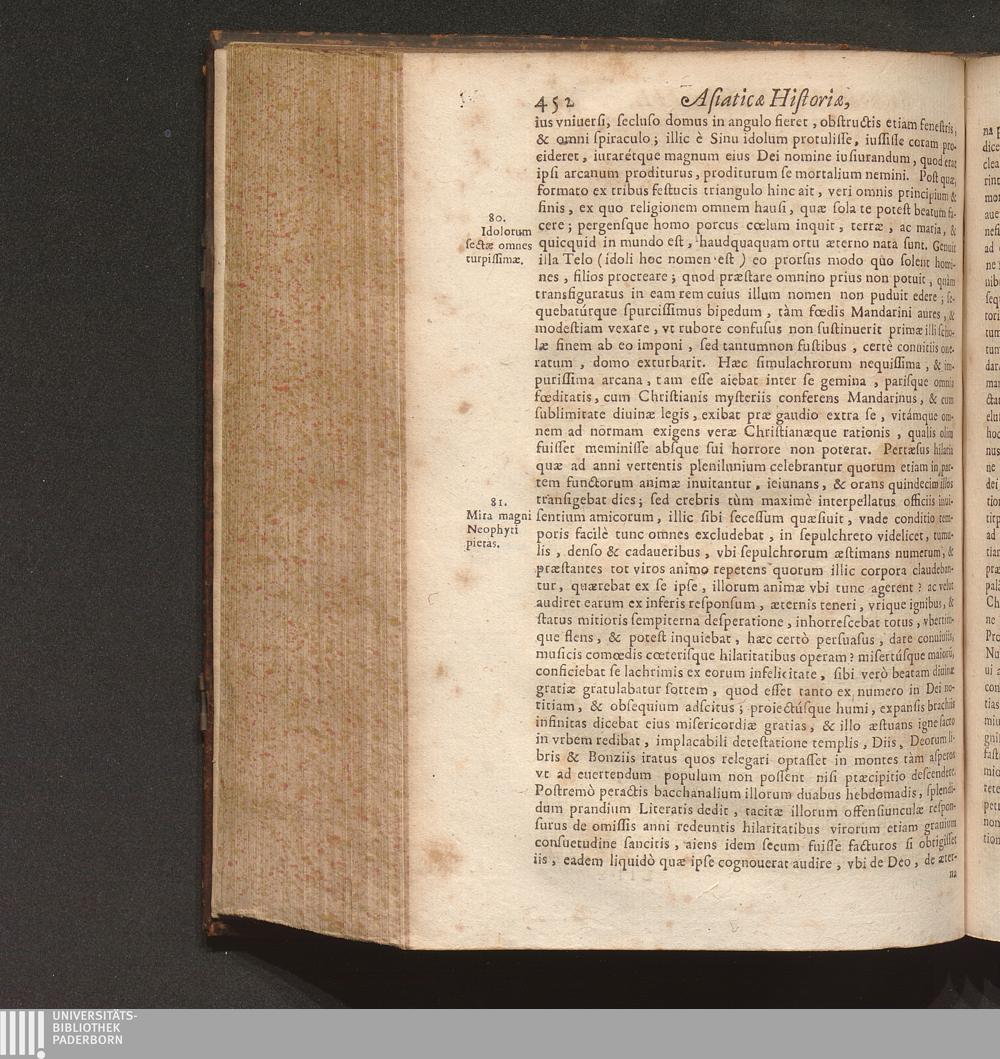 452 Asiaticæ Historiæ,
ius vniuersi, secluso domus in angulo fieret, obstructis etiam fenestris,
& omni spiraculo; illic è Sinu idolum protulisse, iussisse coram pro-
cideret, iurarétque magnum eius Dei nomine iusiurandum, quod erat
ipsi arcanum proditurus, proditurum se mortalium nemini. Post quæ,
formato ex tribus festucis triangulo hinc ait, veri omnis principium &
finis, ex quo religionem omnem hausi, quæ sola te potest beatum fa-
cere; pergensque homo porcus cœlum inquit, terræ, ac maria, &
quicquid in mundo est, haudquaquam ortu æterno nata sunt. Genuit
illa Telo (idoli hoc nomen est) eo prorsus modo quo solent homi-
nes, filios procreare; quod præstare omnino prius non potuit, quàm
transfiguratus in eam rem cuius illum nomen non puduit edere; se-
quebatúrque spurcissimus bipedum, tàm fœdis Mandarini aures, &
modestiam vexare, vt rubore confusus non sustinuerit primæ illi scho-
læ finem ab eo imponi, sed tantumnon fustibus, certè conuitiis one-
ratum, domo exturbarit. Hæc simulachrorum nequissima, & im-
purissima arcana, tam esse aiebat inter se gemina, parisque omnia
fœditatis, cum Christianis mysteriis conferens Mandarinus, & cum
sublimitate diuinæ legis, exibat præ gaudio extra se, vitámque om-
nem ad normam exigens veræ Christianæque rationis, qualis olim
fuisset meminisse absque sui horrore non poterat. Pertæsus hilaria
quæ ad anni vertentis plenilunium celebrantur quorum etiam in par-
tem functorum animæ inuitantur, ieiunans, & orans quindecim illos
transigebat dies; sed crebris tùm maximè interpellatus officiis inui-
sentium amicorum, illic sibi secessum quæsiuit, vnde conditio tem-
poris facilè tunc omnes excludebat, in sepulchreto videlicet, tumu-
lis, denso & cadaueribus, vbi sepulchrorum æstimans numerum, &
præstantes tot viros animo repetens quorum illic corpora claudeban-
tur, quærebat ex se ipse, illorum animæ vbi tunc agerent? ac velut
audiret earum ex inferis responsum, æternis teneri, vrique ignibus, &
status mitioris sempiterna desperatione, inhorrescebat totus, vbertim-
que flens, & potest inquiebat, hæc certò persuasus, dare conuiuiis,
musicis comœdis cœterisque hilaritatibus operam? misertúsque maiorũ,
conficiebat se lachrimis ex eorum infelicitate, sibi verò beatam diuinæ
gratiæ gratulabatur sortem, quod esset tanto ex numero in Dei no-
titiam, & obsequium adscitus; proiectúsque humi, expansis brachiis
infinitas dicebat eius misericordiæ gratias, & illo æstuans igne sacro
in vrbem redibat, implacabili detestatione templis, Diis, Deorum li-
bris & Bonziis iratus quos relegari optasset in montes tàm asperos
vt ad euertendum populum non possent nisi præcipitio descendere.
Postremò peractis bacchanalium illorum duabus hebdomadis, splendi-
dum prandium Literatis dedit, tacitæ illorum offensiunculæ respon-
surus de omissis anni redeuntis hilaritatibus virorum etiam grauium
consuetudine sancitis, aiens idem secum fuisse facturos si obtigisset
iis, eadem liquidò quæ ipse cognouerat audire, vbi de Deo, de æter-
na
80.
Idolorum
sectæ omnes
turpissimæ.
81.
Mira magni
Neophyti
pietas.
UNIVERSITÄTS-
BIBLIOTHEK
PADERBORN